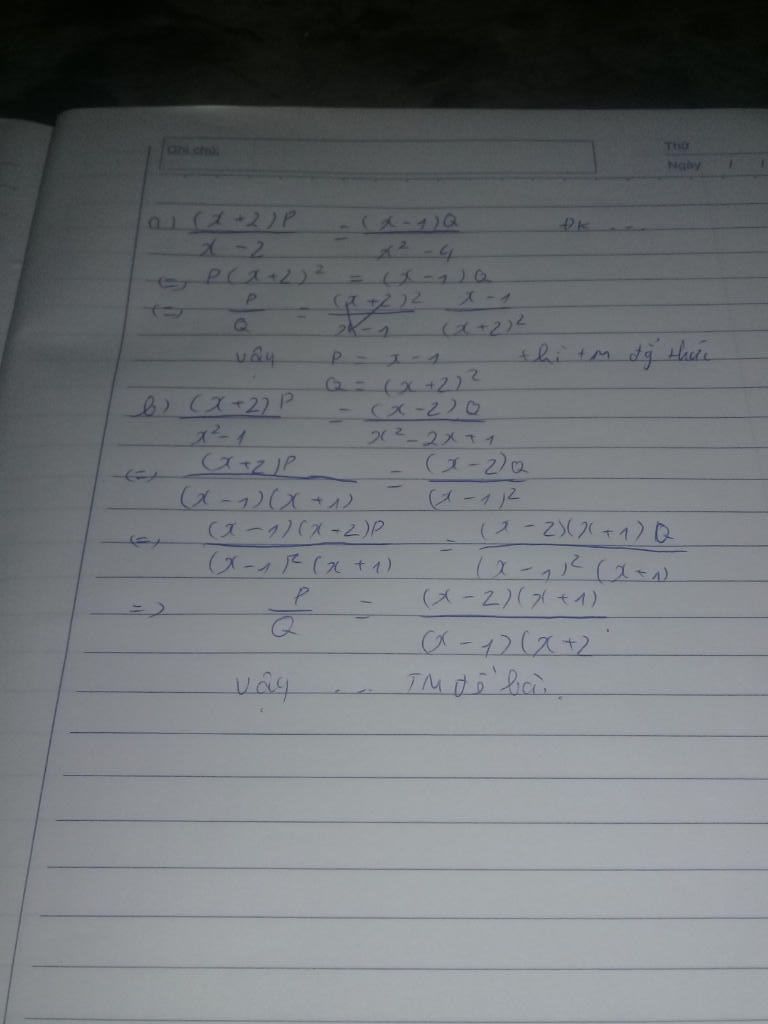 Ghi chú:
Thứ
Ngày / /
a) (x+2)P / x-2 = (x-1)Q / x² - 4 ĐK ...
(=) P(x+2)² = (x-1)Q
(=) P / Q = x-1 / (x+2)²
Vậy P = x-1 thì TM đg̃ thức
Q = (x+2)²
b) (x+2)P / x²-1 = (x-2)Q / x²-2x+1
(=) (x+2)P / (x-1)(x+1) = (x-2)Q / (x-1)²
(=) (x-1)(x+2)P / (x-1)²(x+1) = (x-2)(x+1)Q / (x-1)²(x+1)
=> P / Q = (x-2)(x+1) / (x-1)(x+2
Vậy ... TM đề bài.